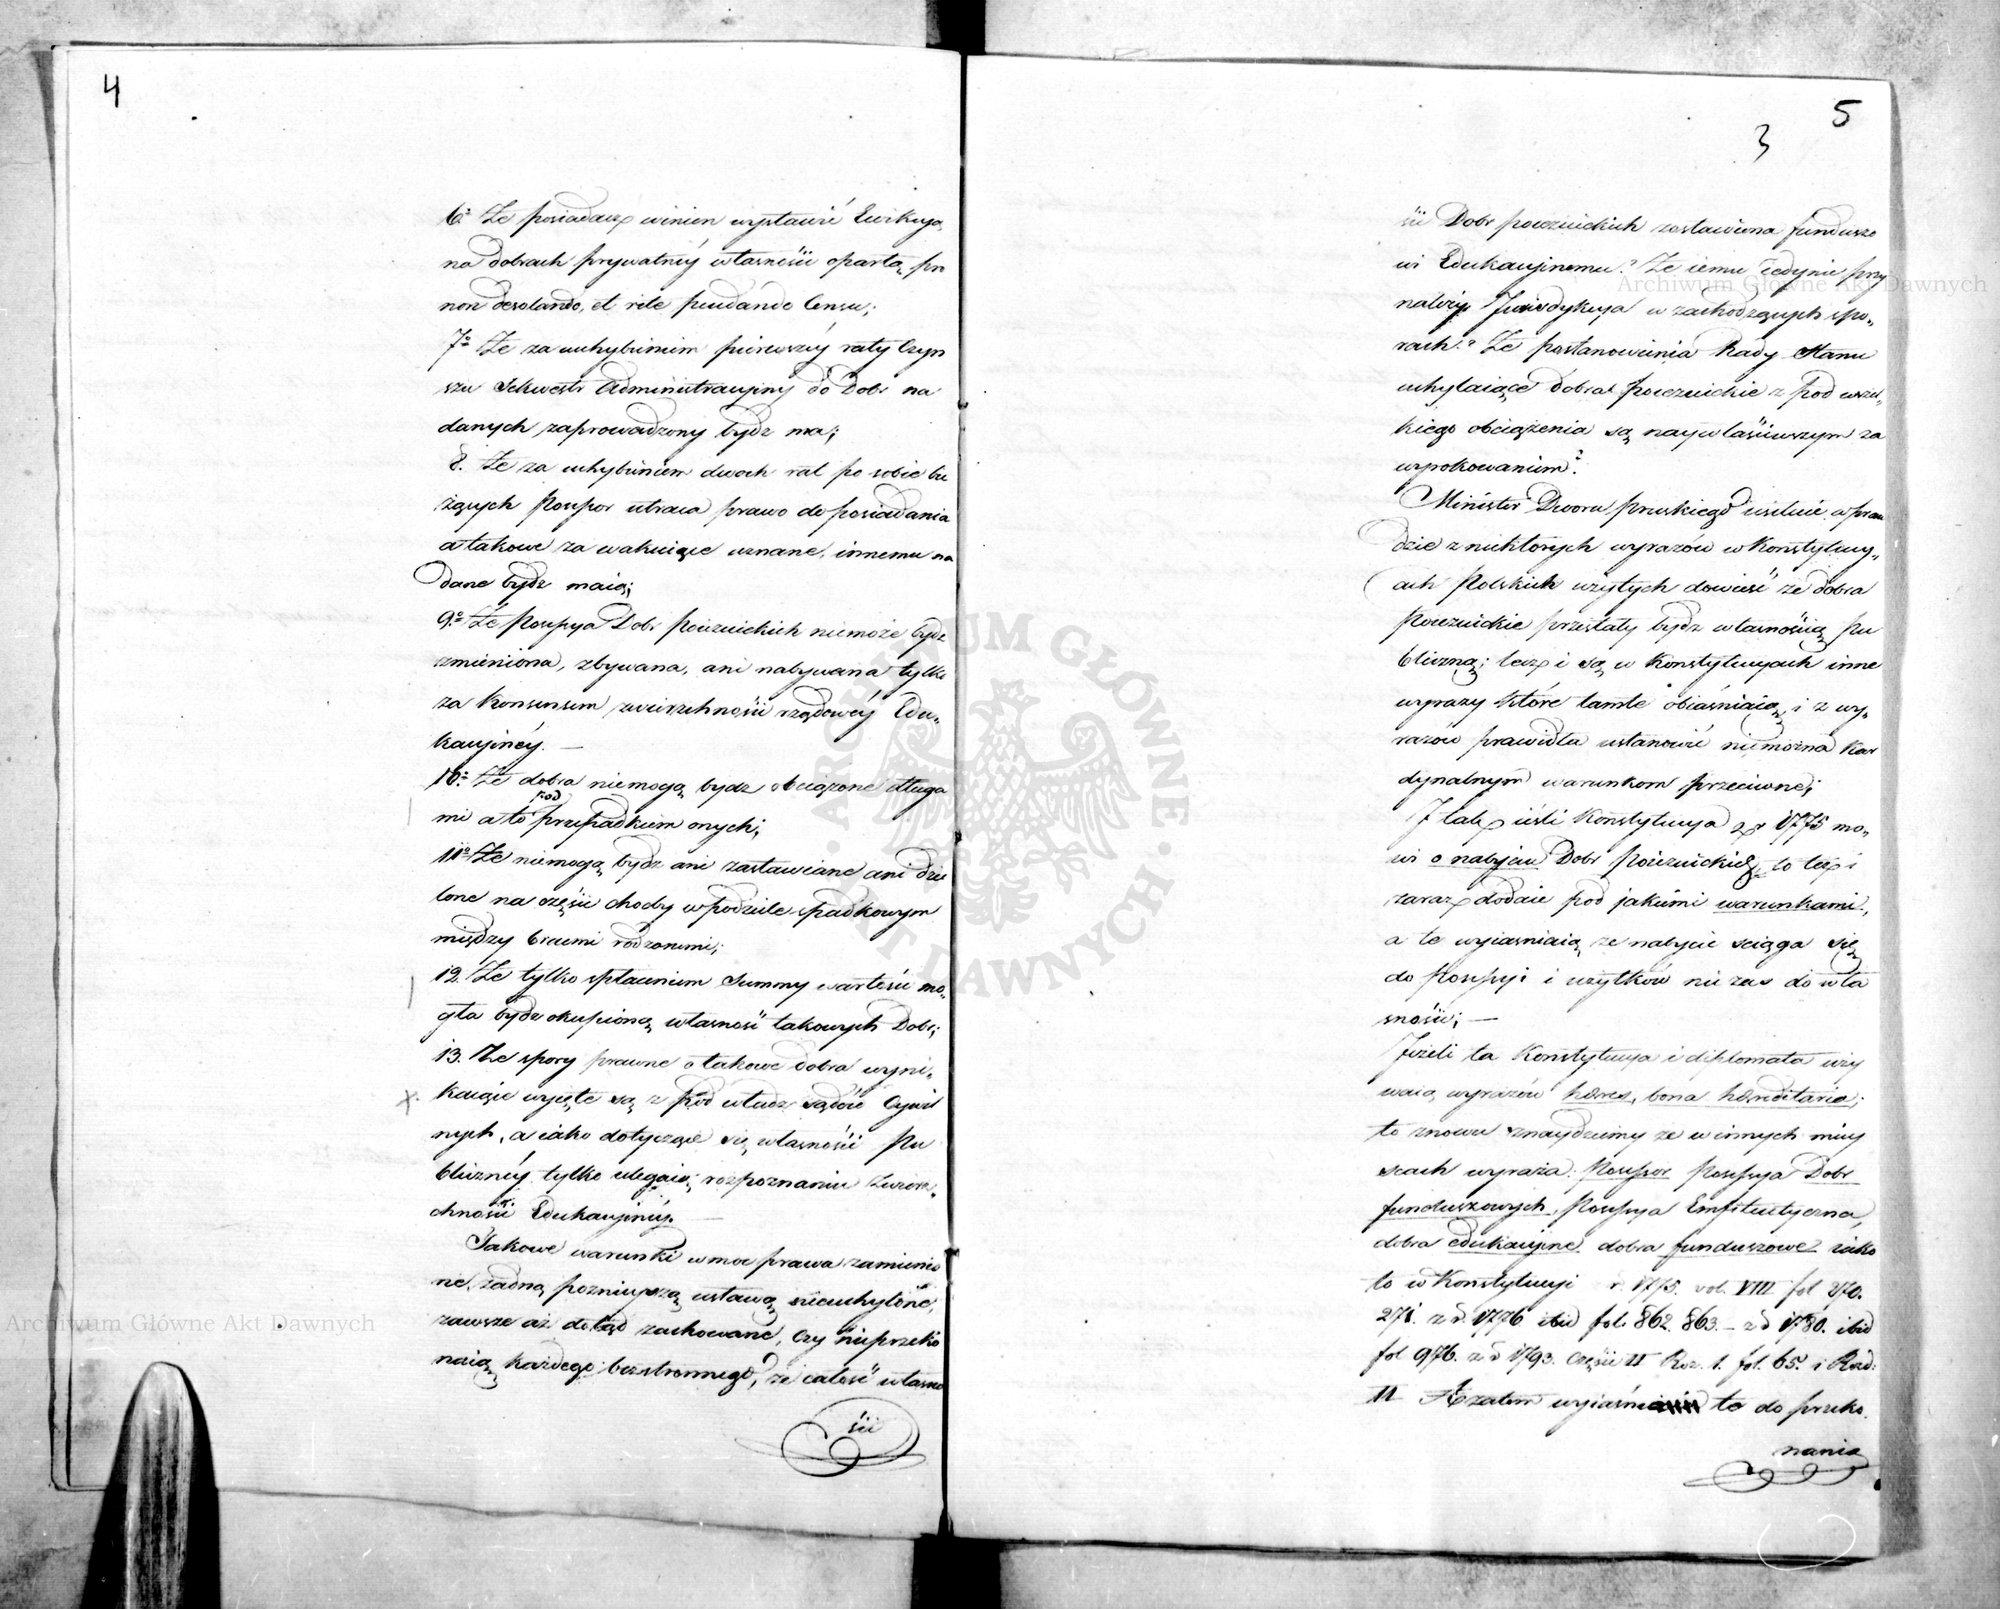 4
6º Że posiadacz winien wystawić Ewikcyą
na dobrach prywatnéy własności opartą, pro
non desolando, et rite
Censu;
7º Że za uchybieniem pierwszéy raty Czyn
szu Sekwestr Administracyiny do Dobr na
danych zaprowadzony bydz ma;
8. Że za uchybieniem dwoch rat po sobie bie
żących Possessor utraca prawo do posiadania
a takowe za wakuiące uznane, innemu na
dane bydz maią;
9º Że Possessya Dobr Poiezuickich niemoże bydz
zmieniona, zbywana, ani nabywana tylko
za Konsensem zwierzchności rządowéy Edu„
kacyinéy. —
10º Że dobra niemogą bydz obciążone długa
mi a to pod przepadkiem onych;
11º Że niemogą bydz ani zastawiane ani dzie
lone na części choćby w podziele spadkowym
między braćmi rodzonemi;
12. Że tylko spłaceniem Summy wartości mo„
gła bydz okupioną własność takowych Dobr;
13. Że spory prawne o takowe dobra wyni„
kaiące wyięte są z pod władz sądów Cywil
nych, a iako dotyczące się własności Pu
bliczney tylko ulegaią rozpoznaniu Zwierz„
chności Edukacyinéy. —
Takowe warunki w moc prawa zamienio
ne, żadną poznieyszą ustawą nieuchylone,
zawsze aż dotąd zachowane, czy nieprzeko
naią każdego bezstronnego, że całość własno
ści
5
3
ści Dobr poiezuickich zostawiona fundusze
wi Edukacyinemu? Że iemu iedynie przy
należy Jurisdykcya w zachodzących spo„
rach? Że postanowienia Rady Stanu
uchylaiące dobra poiezuickie z pod wszel„
kiego obciążenia są naywłaściwszym za
wyrokowaniem?
Minister Dworu pruskiego usiłuie w praw
dzie z niektórych wyrazów w Konstytucy„
ach Polskich użytych dowieść że dobra
Poiezuickie przestały bydz własnością Pu
bliczną; lecz i są w Konstytucyach inne
wyrazy które tamte obiaśniaią, i z wy„
razów prawidła ustanowić niemożna kar
dynalnym warunkom przeciwne;
I tak ieśli Konstytucya z r. 1775 mo„
wi o nabyciu Dobr Poiezuickich, to też i
zaraz dodaie pod jakiemi warunkami,
a te wyiasniaią że nabycie sciąga się
do Possessyi i użytków nie zas do wła
sności; —
Jeżeli ta Konstytucya i diplomata uży
waią wyrazów hæres, bona hæreditaria;
to znowu znaydziemy że w innych miey
scach wyraża: Possessor Possessya Dobr
funduszowych, Possessya Emfiteutyczna,
dobra edukacyine, dobra funduszowe iako
to w Konstytucyi r. 1775. vol. VIII fol 270.
271. z r. 1776 ibid fol. 862. 863. – z r 1780. ibid
fol 976. z r 1793. Części II Roz. 1. fol. 65. i Rozd:
II A zatem
to do przeko
nania
ARCHIWUM GŁÓWNE AKT DAWNYCH
Archiwum Główne Akt Dawnych
Archiwum Główne Akt Dawnych